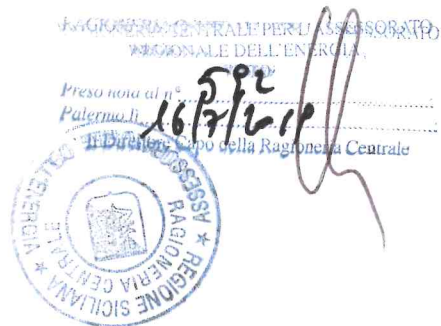 RAGIONERIA CENTRALE PER L'ASSESSORATO
REGIONALE DELL'ENERGIA
VISTO
Preso nota al n° 592
Palermo lì 16/7/2019
Il Direttore Capo della Ragioneria Centrale
★ REGIONE SICILIANA ★ ASSESSORATO DELL'ENERGIA
RAGIONERIA CENTRALE